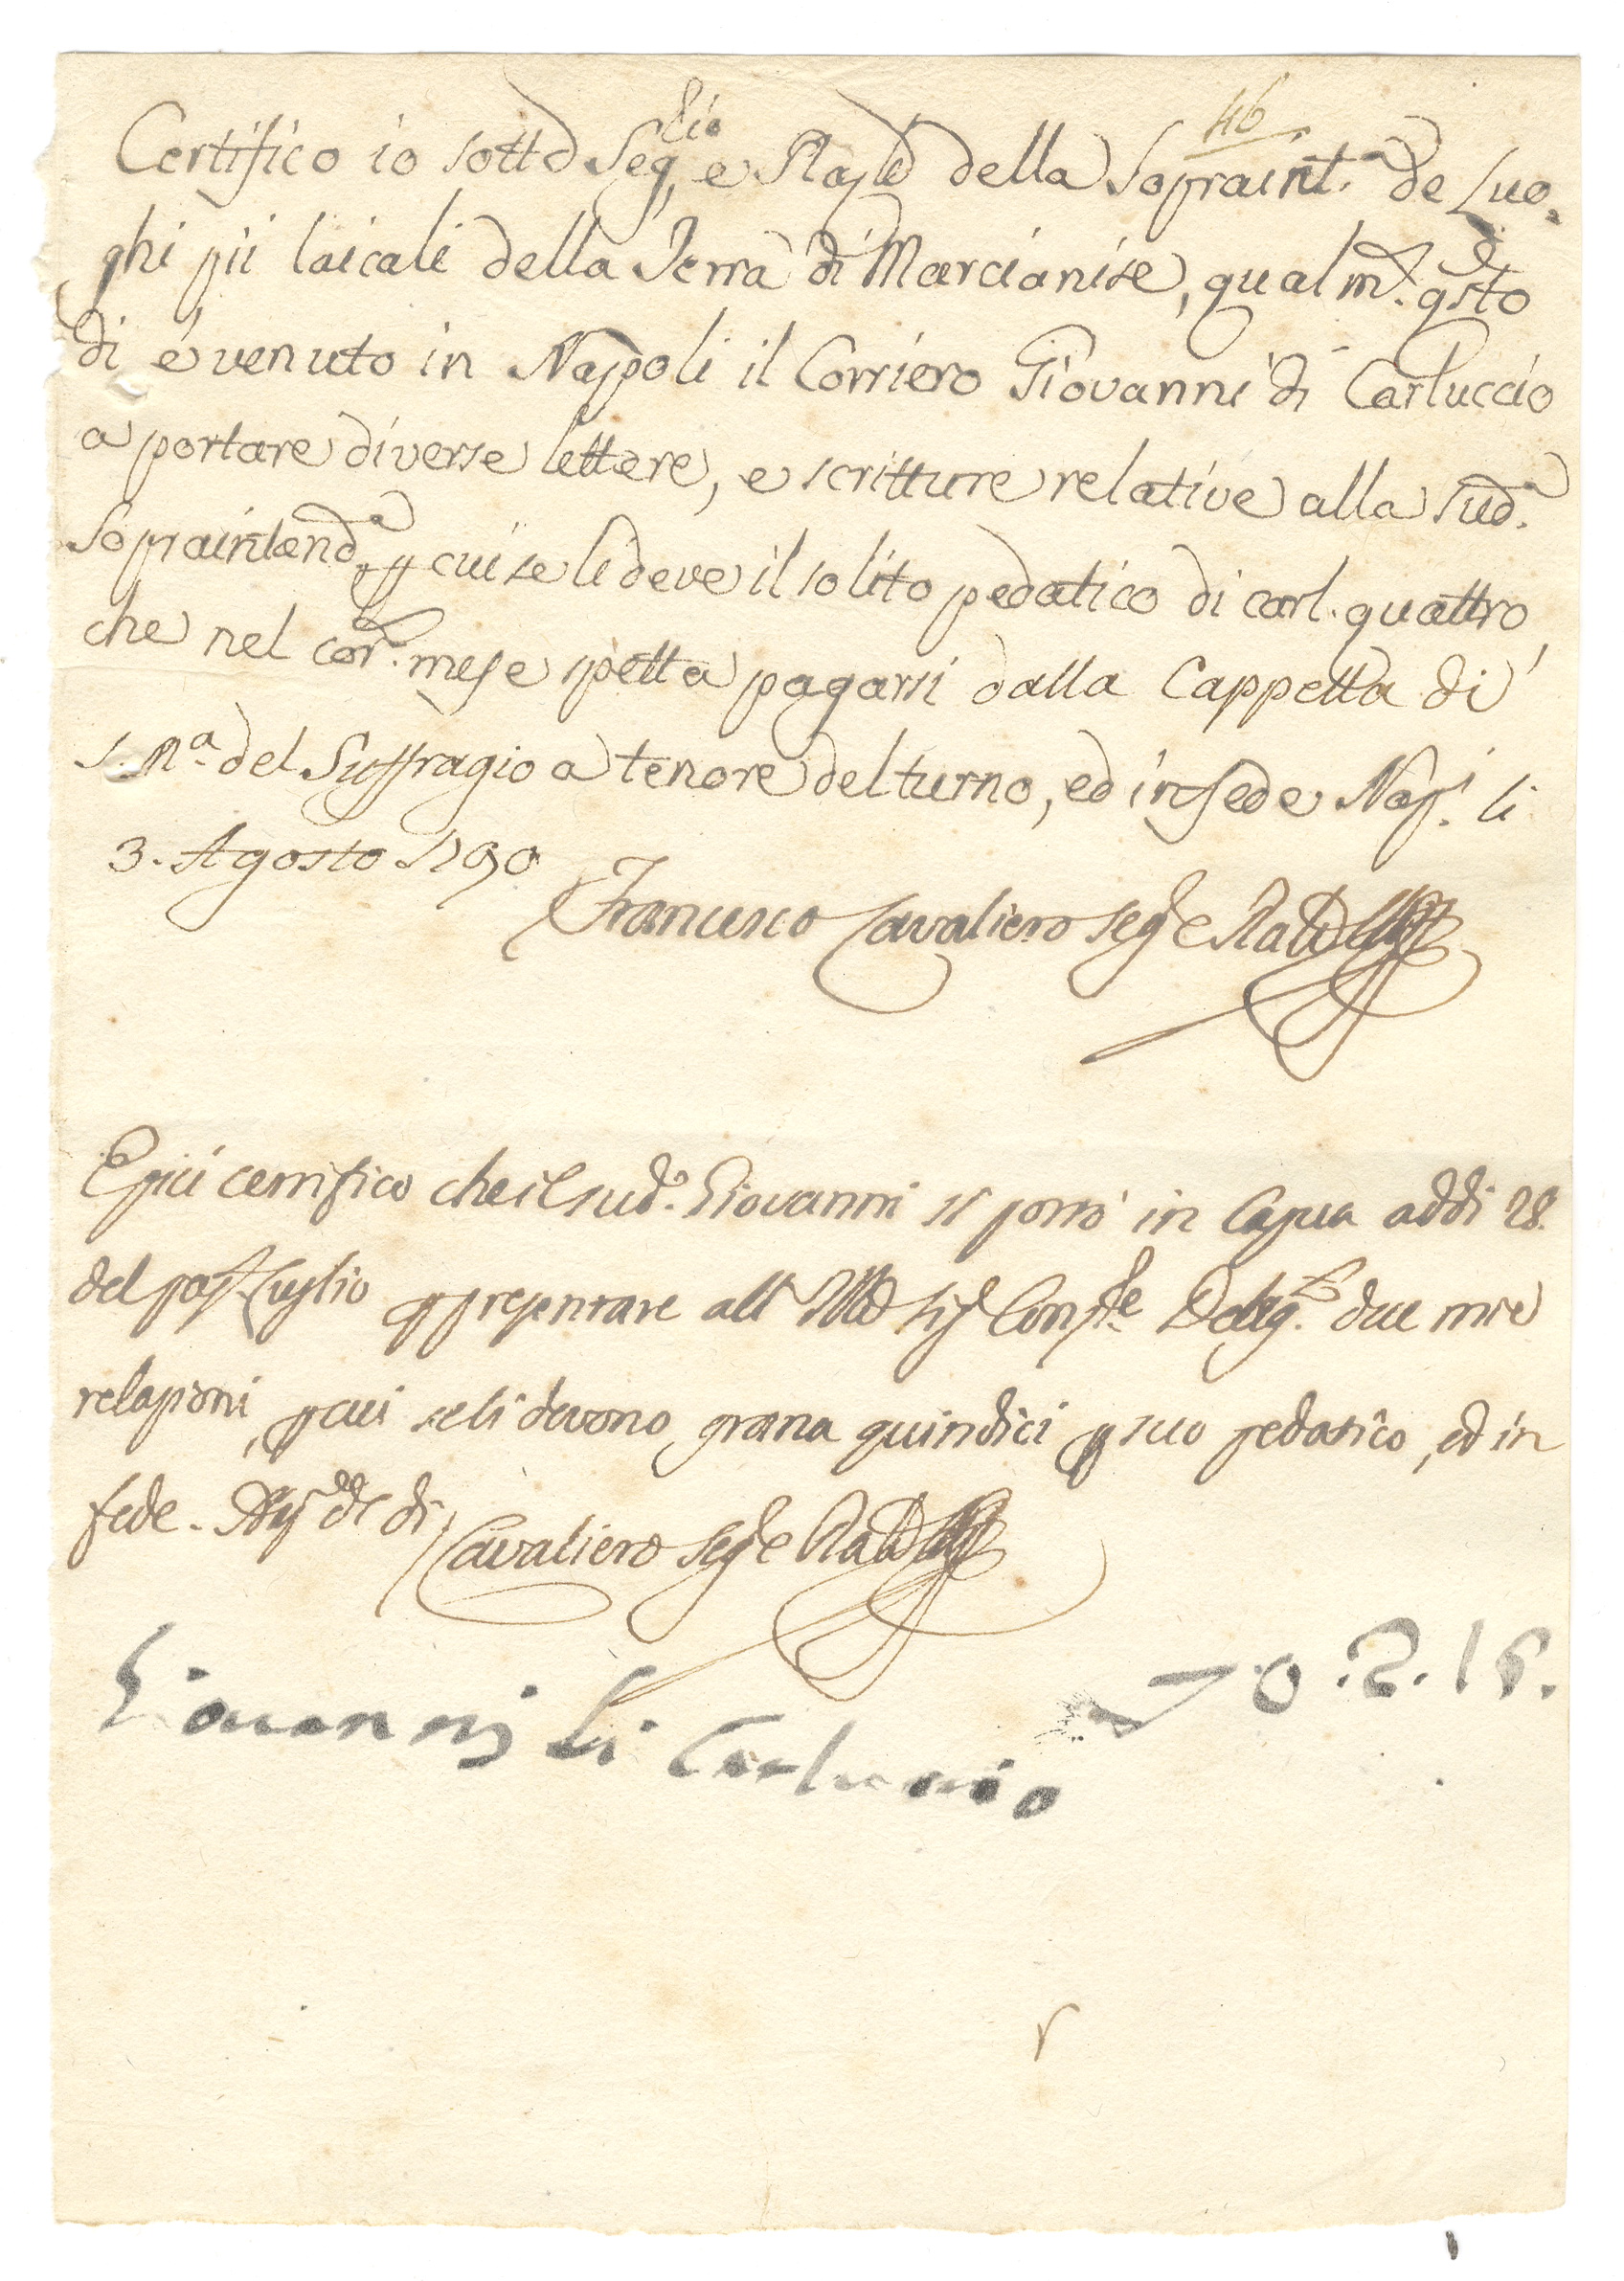 46
Certifico io sottō Seg.rio e Raz.le della Sopraint.a de Luo-
ghi pii laicali della Terra di Marcianise, qualm.e qsto
di è venuto in Napoli il Corriero Giovanni di Carluccio
a portare diverse lettere, e scritture relative alla sud.a
Sopraintend.a p cui se li deve il solito pedatico di carl. quattro,
che nel cor.e mese spetta pagarsi dalla Cappella di
S. M.a del Suffragio a tenore del turno, ed in fede Nap.i li
3. Agosto 1790
Francesco Cavaliero Seg.e
E più certifico che il sud.o Giovanni si portò in Capua addi 28.
del pas.o Luglio p presentare all' Ill.mo Sig.e Cons.re Deleg.to due mie
relazioni, p cui se li devono grana quindici p suo pedatico, ed in
fede. di
Cavaliero Seg.e
Giovanni di Carluccio 0.2.15.